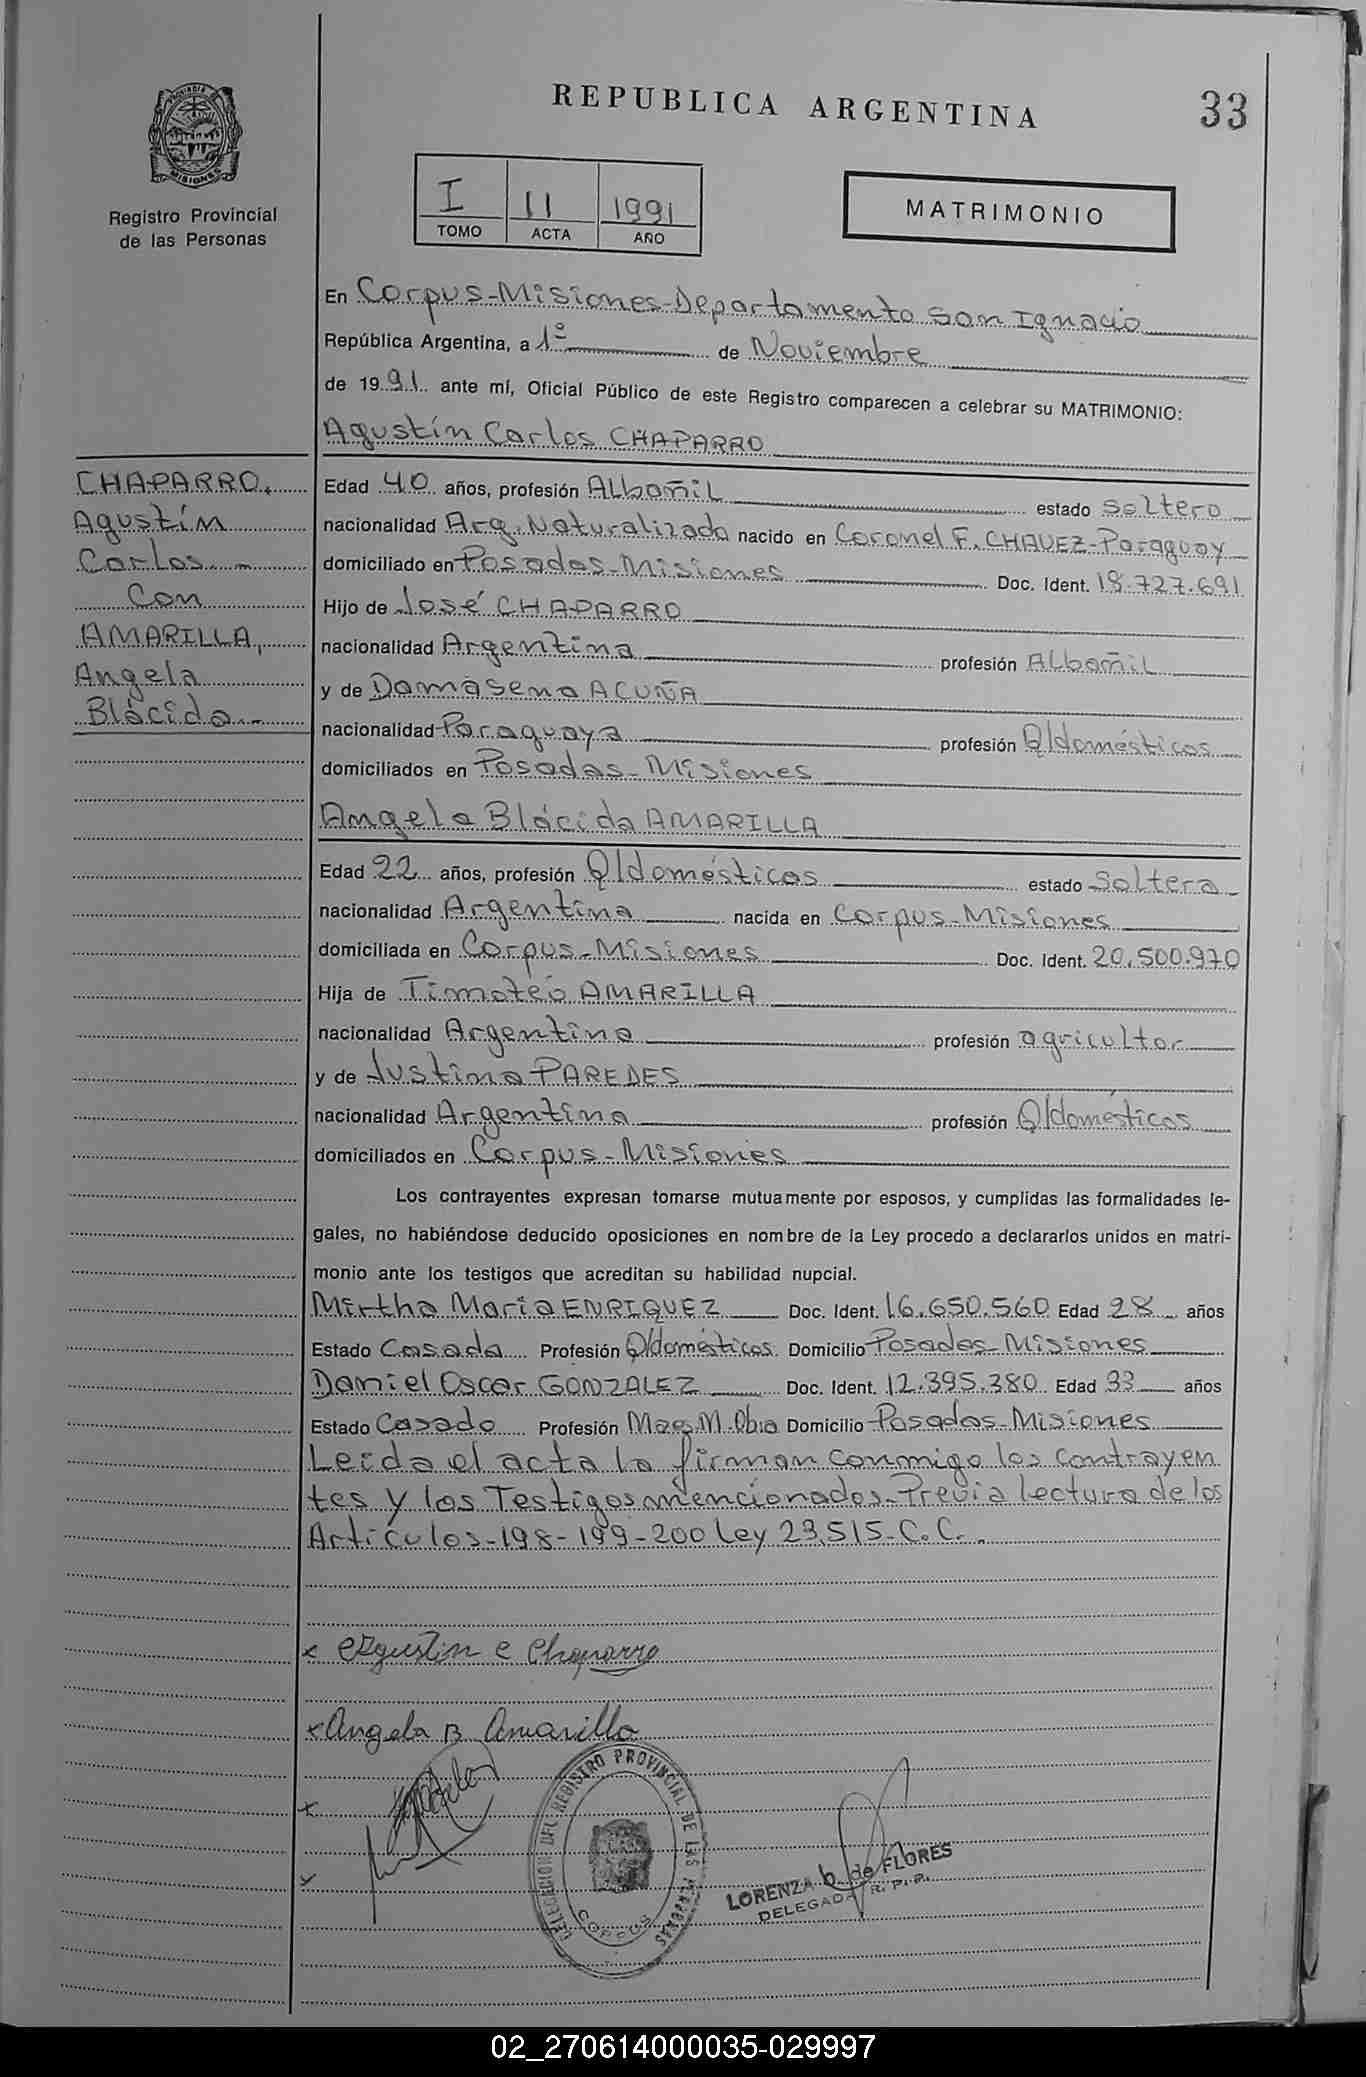 REPUBLICA ARGENTINA
33
PROVINCIA DE
MISIONES
Registro Provincial
de las Personas
I 11 1991
TOMO ACTA AÑO
MATRIMONIO
En Corpus-Misiones-Departamento San Ignacio
República Argentina, a 1º de Noviembre
de 1991 ante mí, Oficial Público de este Registro comparecen a celebrar su MATRIMONIO:
Agustín Carlos CHAPARRO
CHAPARRO,
Agustín
Carlos
Con
AMARILLA,
Angela
Blácida
Edad 40 años, profesión Albañil estado soltero
nacionalidad Arg. Naturalizado nacido en Coronel F. CHAVEZ-Paraguay
domiciliado en Posadas-Misiones Doc. Ident. 18.727.691
Hijo de José CHAPARRO
nacionalidad Argentina profesión Albañil
y de Damasena ACUÑA
nacionalidad Paraguaya profesión Q/domésticos
domiciliados en Posadas-Misiones
Angela Blácida AMARILLA
Edad 22 años, profesión Q/domésticos estado Soltera
nacionalidad Argentina nacida en Corpus-Misiones
domiciliada en Corpus-Misiones Doc. Ident. 20.500.970
Hija de Timoteo AMARILLA
nacionalidad Argentina profesión agricultor
y de Justina PAREDES
nacionalidad Argentina profesión Q/domésticos
domiciliados en Corpus-Misiones
Los contrayentes expresan tomarse mutuamente por esposos, y cumplidas las formalidades le-
gales, no habiéndose deducido oposiciones en nombre de la Ley procedo a declararlos unidos en matri-
monio ante los testigos que acreditan su habilidad nupcial.
Mirtha María ENRIQUEZ Doc. Ident. 16.650.560 Edad 28 años
Estado Casada Profesión Q/domésticos Domicilio Posadas-Misiones
Daniel Oscar GONZALEZ Doc. Ident. 12.395.380 Edad 33 años
Estado Casado Profesión Maes. M. Obra Domicilio Posadas-Misiones
Leída el acta la firman conmigo los contrayen
tes y los Testigos mencionados-Previa lectura de los
Artículos-198-199-200 Ley 23.515-C.C.
x Agustin C Chaparro
x Angela B Amarilla
x
x
DELEGACION DEL REGISTRO PROVINCIAL DE LAS PERSONAS
CORPUS
LORENZA b. de FLORES
DELEGADA R. P. P.
02_270614000035-029997